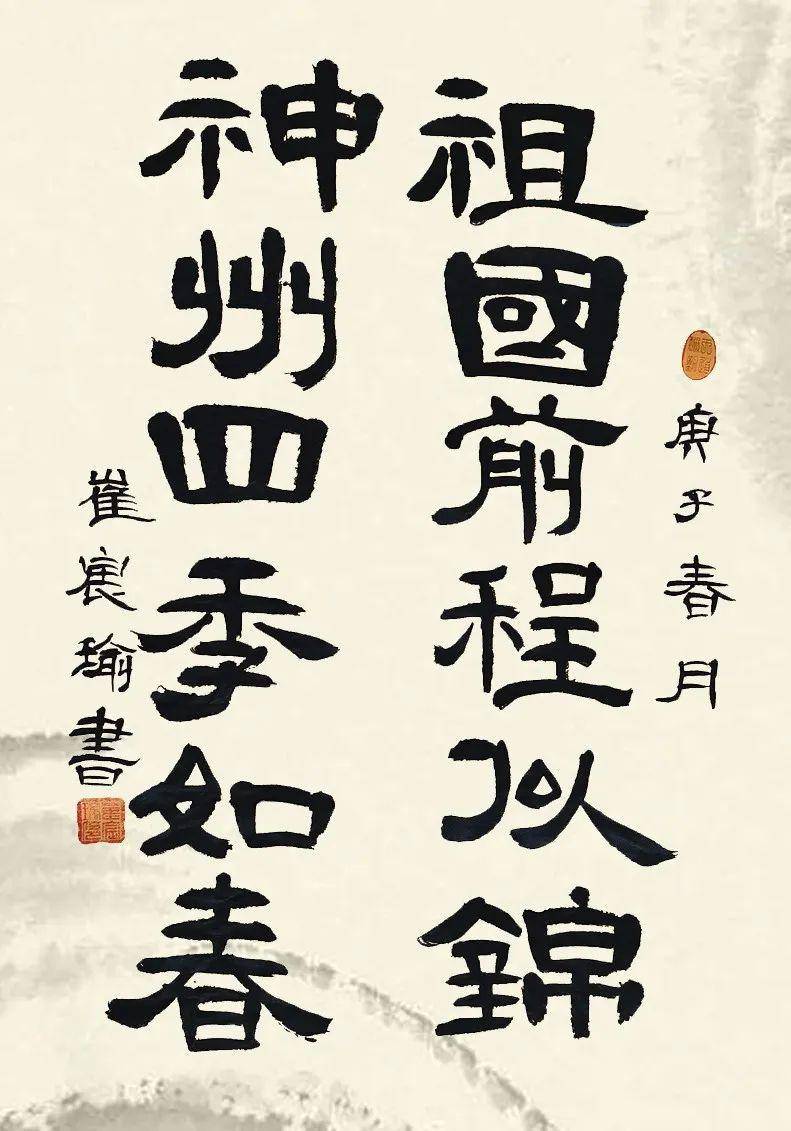 庚子春月
祖國前程似錦
神州四季如春
崔宸瑜書